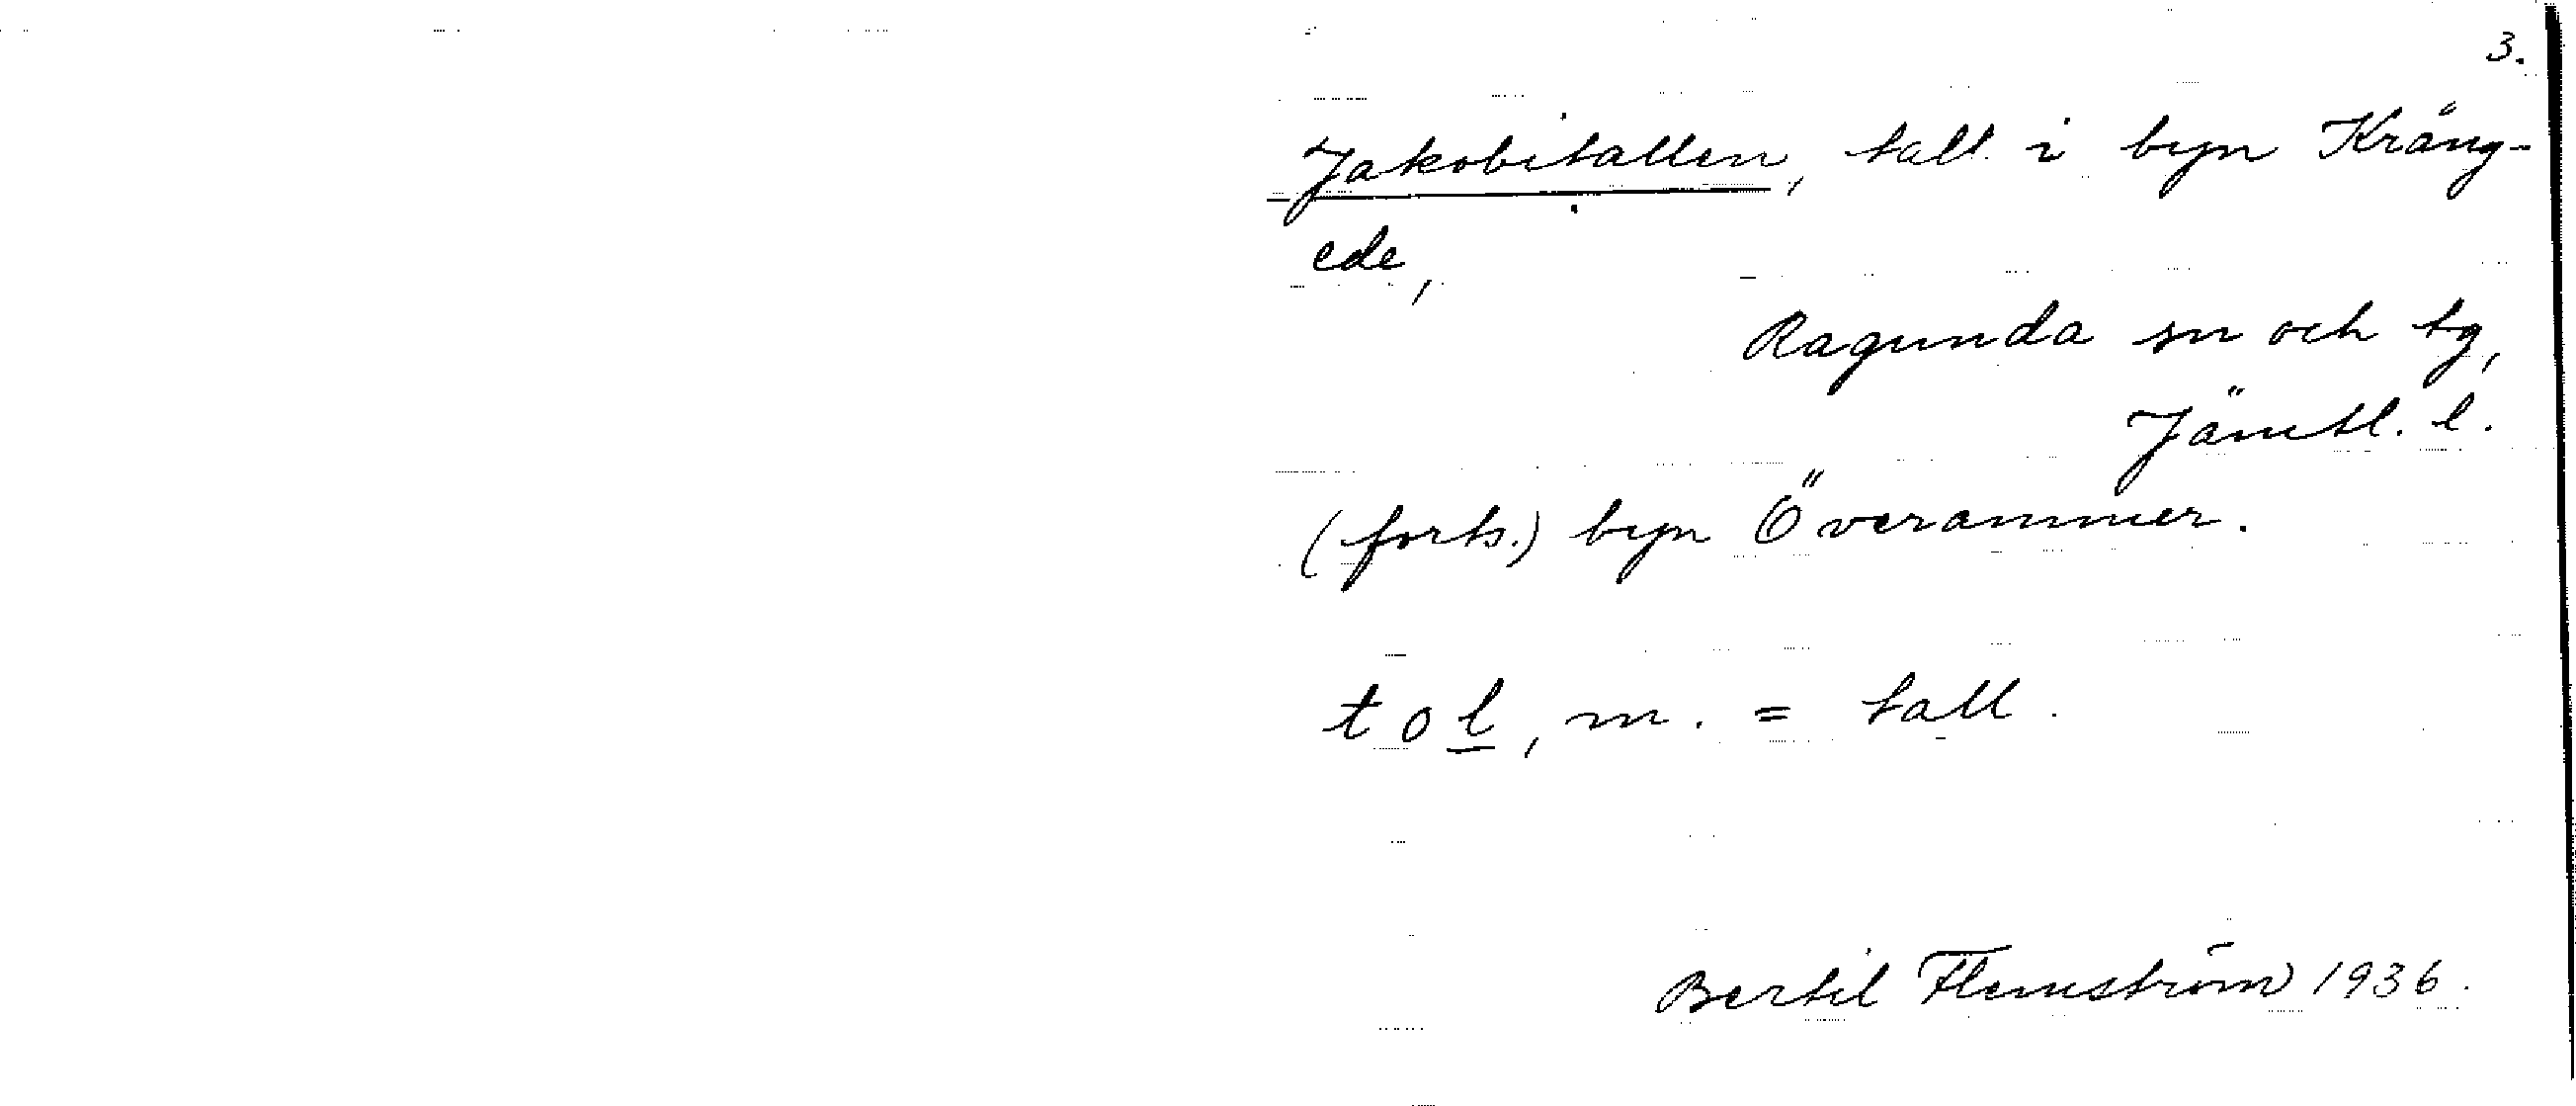 3.
Jakobitallen, tall i byn Kräng-
ede,
Ragunda sn och tg,
Jämtl. l.
(forts.) byn Överammer.
tol, m. = tall.
Bertil Flemström 1936.